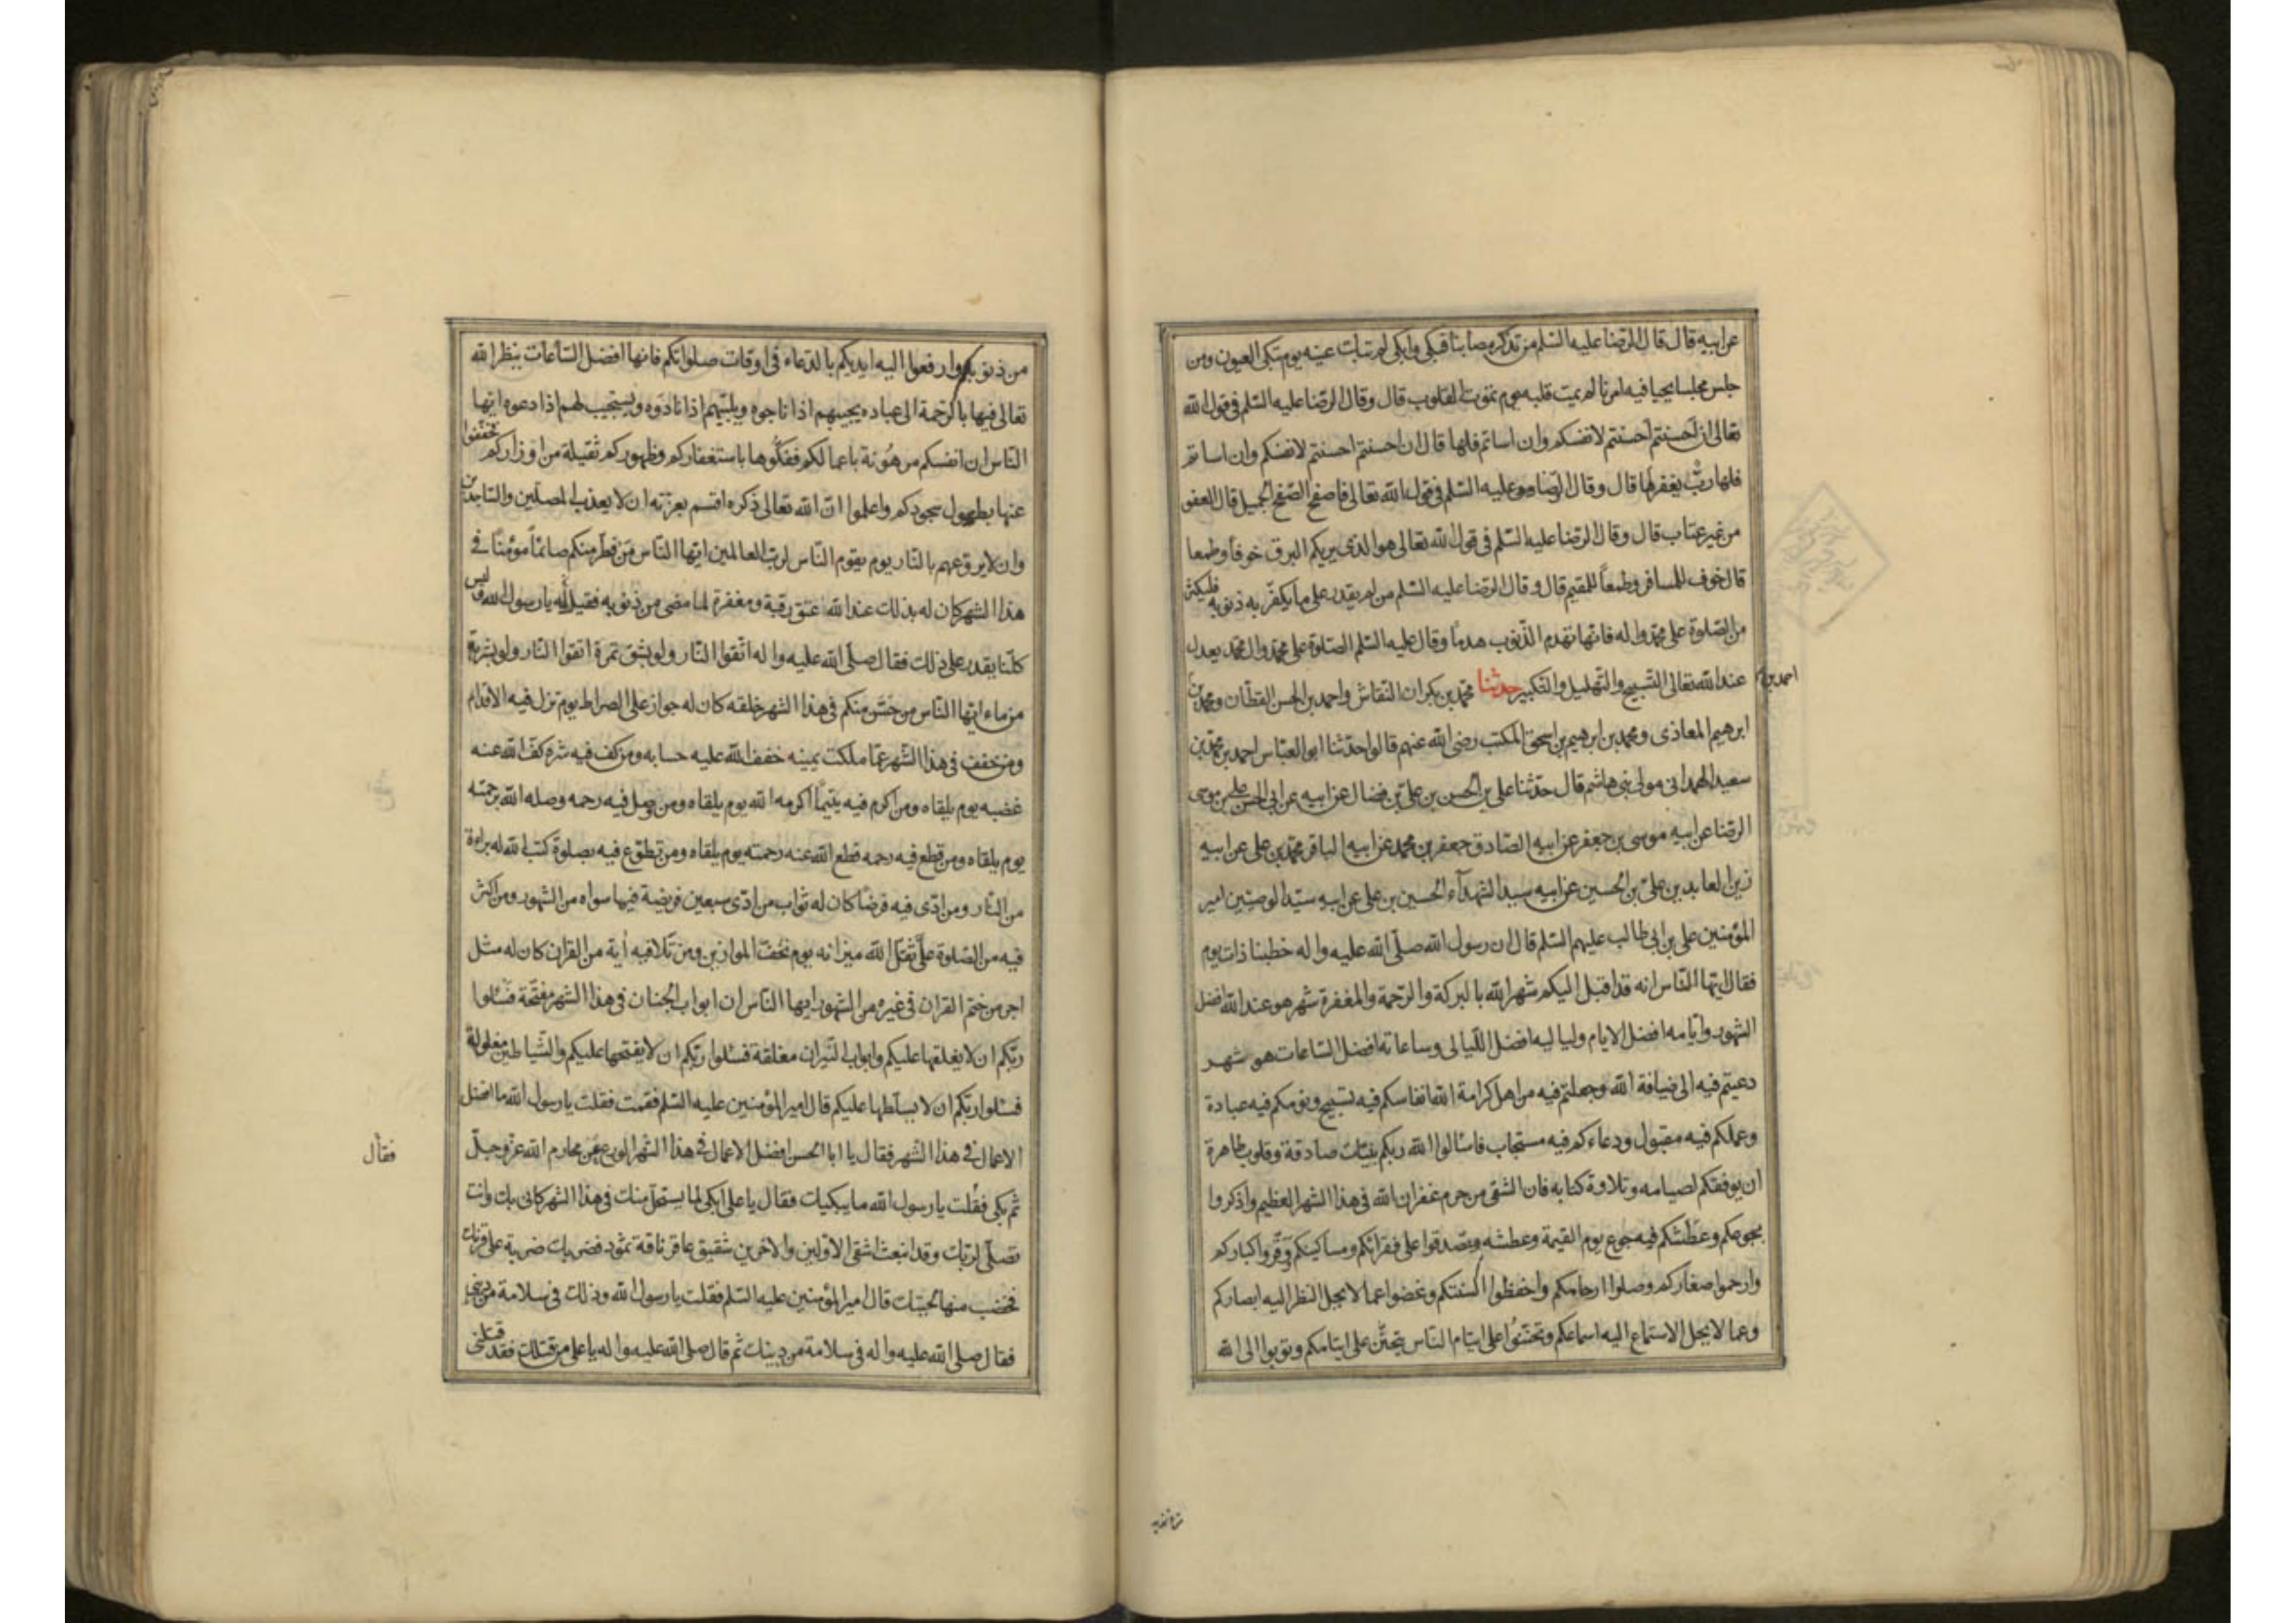 عن ابيه قال قال الرضا عليه السلم من تذكر مصابنا فبكى وابكى لم تبك عينه يوم تبكى العيون ومن
جلس مجلسا يحيا فيه امرنا لم يمت قلبه يوم تموت القلوب قال وقال الرضا عليه السلم فى قول الله
تعالى ان احسنتم احسنتم لانفسكم وان اساتم فلها قال ان احسنتم احسنتم لانفسكم وان اساتم
فلها رب يغفر لها قال وقال الرضا عليه السلم فى قول الله تعالى فاصفح الصفح الجميل قال العفو
من غير عتاب قال وقال الرضا عليه السلم فى قول الله تعالى هو الذى يريكم البرق خوفا وطمعا
قال خوف للمسافر وطمعاً للمقيم قال وقال الرضا عليه السلم من لم يقدر على ما يكفر به ذنوبه فليكثر
من الصلوة على محمد واله فانها تهدم الذنوب هدما وقال عليه السلم الصلوة على محمد وال محمد يعدل
عند الله تعالى التسبيح والتهليل والتكبير حدثنا محمد بن بكران النقاش واحمد بن الحسن القطان ومحمد بن
احمد بن
ابرهيم المعاذى ومحمد بن ابرهيم بن اسحق المكتب رضى الله عنهم قالوا حدثنا ابو العباس احمد بن محمد بن
سعيد الهمدانى مولى بنى هاشم قال حدثنا على بن الحسن بن على بن فضال عن ابيه عن ابى الحسن على بن موسى
الرضا عن ابيه موسى بن جعفر عن ابيه الصادق جعفر بن محمد عن ابيه الباقر محمد بن على عن ابيه
زين العابدين على بن الحسين عن ابيه سيد الشهدآء الحسين بن على عن ابيه سيد الوصيين امير
المؤمنين على بن ابى طالب عليهم السلم قال ان رسول الله صلى الله عليه واله خطبنا ذات يوم
فقال ايها الناس انه قد اقبل اليكم شهر الله بالبركة والرحمة والمغفرة شهر هو عند الله افضل
الشهور وايامه افضل الايام ولياليه افضل الليالى وساعاته افضل الساعات هو شهر
دعيتم فيه الى ضيافة الله وجعلتم فيه من اهل كرامة الله انفاسكم فيه تسبيح ونومكم فيه عبادة
وعملكم فيه مقبول ودعاءكم فيه مستجاب فاسالوا الله ربكم بنيات صادقة وقلوب طاهرة
ان يوفقكم لصيامه وتلاوة كتابه فان الشقى من حرم غفران الله فى هذا الشهر العظيم واذكروا
بجوعكم وعطشكم فيه جوع يوم القيمة وعطشه وتصدقوا على فقرائكم ومساكينكم وقروا كباركم
وارحموا صغاركم وصلوا ارحامكم واحفظوا السنتكم وغضوا عما لا يحل النظر اليه ابصاركم
وعما لا يحل الاستماع اليه اسماعكم وتحننوا على ايتام الناس يتحنن على ايتامكم وتوبوا الى الله
من ذنوبكم وارفعوا اليه ايديكم بالدعاء فى اوقات صلواتكم فانها افضل الساعات ينظر الله
تعالى فيها بالرحمة الى عباده يجيبهم اذا ناجوه ويلبيهم اذا نادوه ويستجيب لهم اذا دعوه ايها
الناس ان انفسكم مرهونة باعمالكم ففكوها باستغفاركم وظهوركم ثقيلة من اوزاركم فخففوا
عنها بطول سجودكم واعلموا ان الله تعالى ذكره اقسم بعزته ان لا يعذب المصلين والساجدين
وان لا يروعهم بالنار يوم يقوم الناس لرب العالمين ايها الناس من فطر منكم صائما مؤمنا فى
هذا الشهر كان له بذلك عند الله عتق رقبة ومغفرة لما مضى من ذنوبه فقيل له يا رسول الله وليس
كلنا يقدر على ذلك فقال صلى الله عليه واله اتقوا النار ولو بشق تمرة اتقوا النار ولو بشربة
من ماء ايها الناس من حسن منكم فى هذا الشهر خلقه كان له جواز على الصراط يوم تزل فيه الاقدام
ومن خفف فى هذا الشهر عما ملكت يمينه خفف الله عليه حسابه ومن كف فيه شره كف الله عنه
غضبه يوم يلقاه ومن اكرم فيه يتيماً اكرمه الله يوم يلقاه ومن وصل فيه رحمه وصله الله برحمته
يوم يلقاه ومن قطع فيه رحمه قطع الله عنه رحمته يوم يلقاه ومن تطوع فيه بصلوة كتب الله له براءة
من النار ومن ادى فيه فرضا كان له ثواب من ادى سبعين فريضة فيما سواه من الشهور ومن اكثر
فيه من الصلوة على ثقل الله ميزانه يوم تخف الموازين ومن تلا فيه اية من القران كان له مثل
اجر من ختم القران فى غيره من الشهور ايها الناس ان ابواب الجنان فى هذا الشهر مفتحة فسئلوا
ربكم ان لا يغلقها عليكم وابواب النيران مغلقة فسئلوا ربكم ان لا يفتحها عليكم والشياطين مغلولة
فسئلوا ربكم ان لا يسلطها عليكم قال امير المؤمنين عليه السلم فقمت فقلت يا رسول الله ما افضل
الاعمال فى هذا الشهر فقال يا ابا الحسن افضل الاعمال فى هذا الشهر الورع عن محارم الله عز وجل
فقال
ثم بكى فقلت يا رسول الله ما يبكيك فقال يا على ابكى لما يستحل منك فى هذا الشهر كانى بك وانت
تصلى لربك وقد انبعث اشقى الاولين والاخرين شقيق عاقر ناقة ثمود فضربك ضربة على قرنك
فخضب منها لحيتك قال امير المؤمنين عليه السلم فقلت يا رسول الله وذلك فى سلامة من دينى
فقال صلى الله عليه واله فى سلامة من دينك ثم قال صلى الله عليه واله يا على من قتلك فقد قتلنى